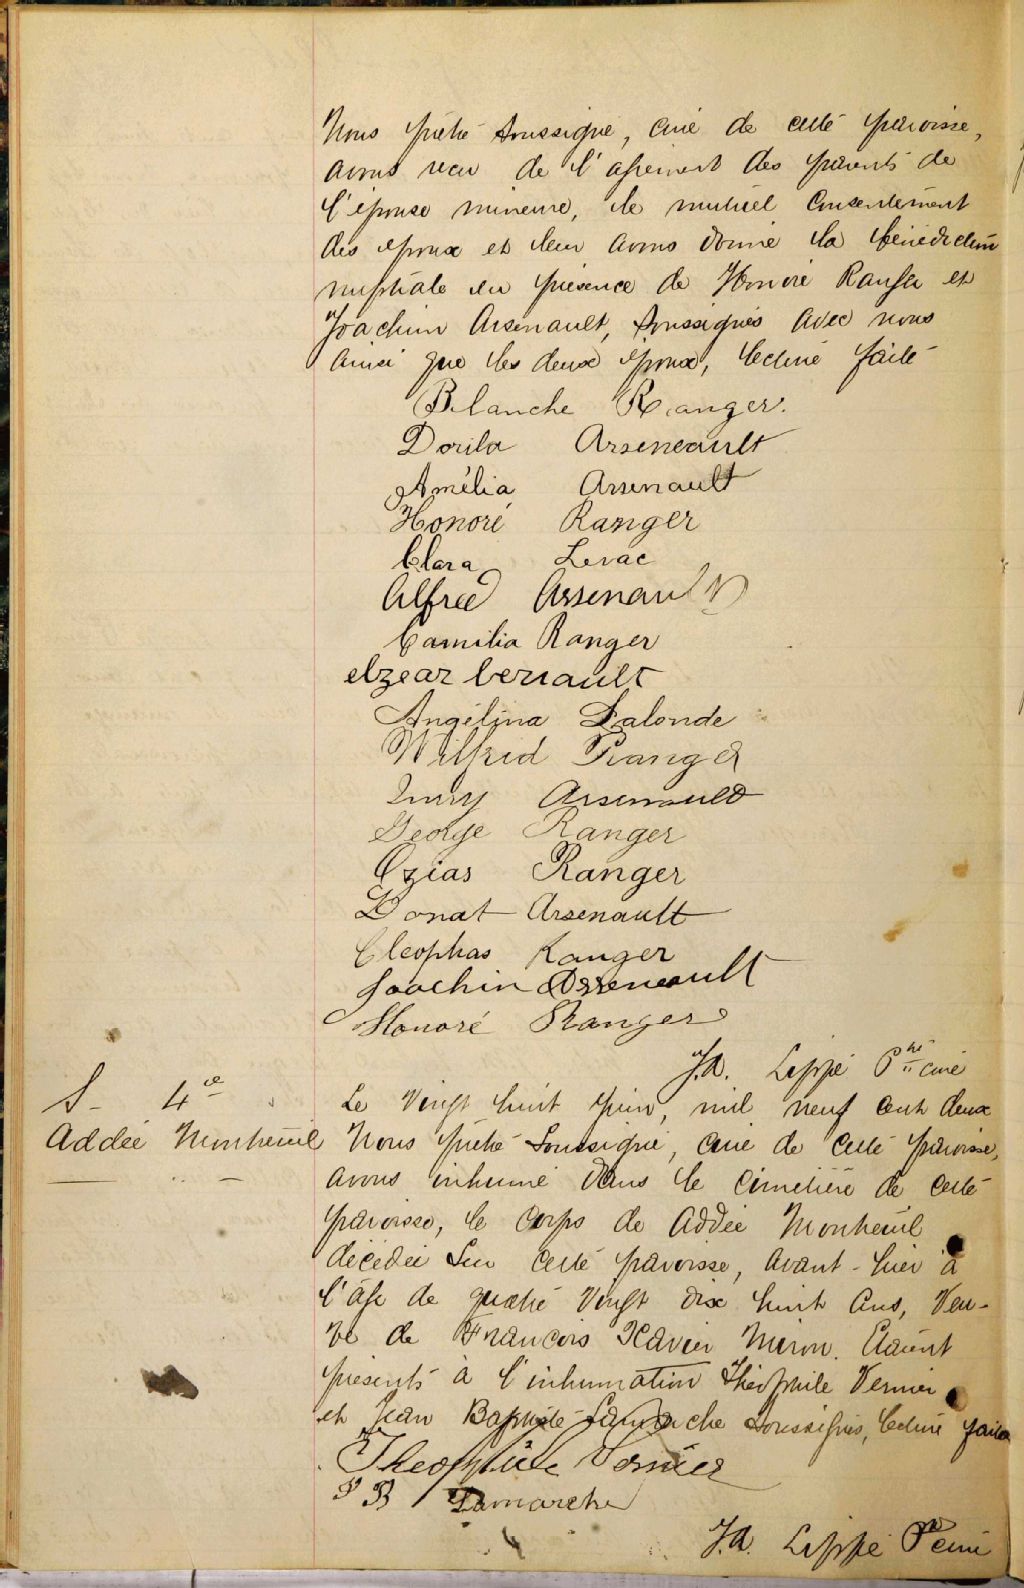 Nous prêtre soussigné, curé de cette paroisse,
avons reçu de l'agrément des parents de
l'épouse mineure, le mutuel consentement
des époux et leur avons donné la bénédiction
nuptiale en présence de Honoré Ranger et
Joachim Arsenault, soussignés avec nous
ainsi que les deux époux, lecture faite
Blanche Ranger.
Dorila Arseneault
Amélia Arsenault
Honoré Ranger
Clara Levac
Alfred Arsenault
Camilia Ranger
elzear
Angélina Lalonde
Wilfrid Ranger
Arsenault
George Ranger
Ozias Ranger
Donat Arsenault
Cleophas Ranger
Joachin Arseneault
Honoré Ranger
J.A. Lippé Ptre curé
S- 4e
Addée Montreuil
Le vingt huit juin, mil neuf cent deux
Nous prêtre soussigné, curé de cette paroisse,
avons inhumé dans le cimetière de cette
paroisse, le corps de Addée Montreuil
décédée sur cette paroisse, avant-hier à
l'âge de quatre vingt dix huit ans, veu-
ve de François Xavier Miron. Étaient
présents à l'inhumation Théophile Vernier
et Jean Baptiste Lamarche soussignés, lecture faite
Theophile Vernier
J B Lamarche
J.A. Lippé Ptre curé